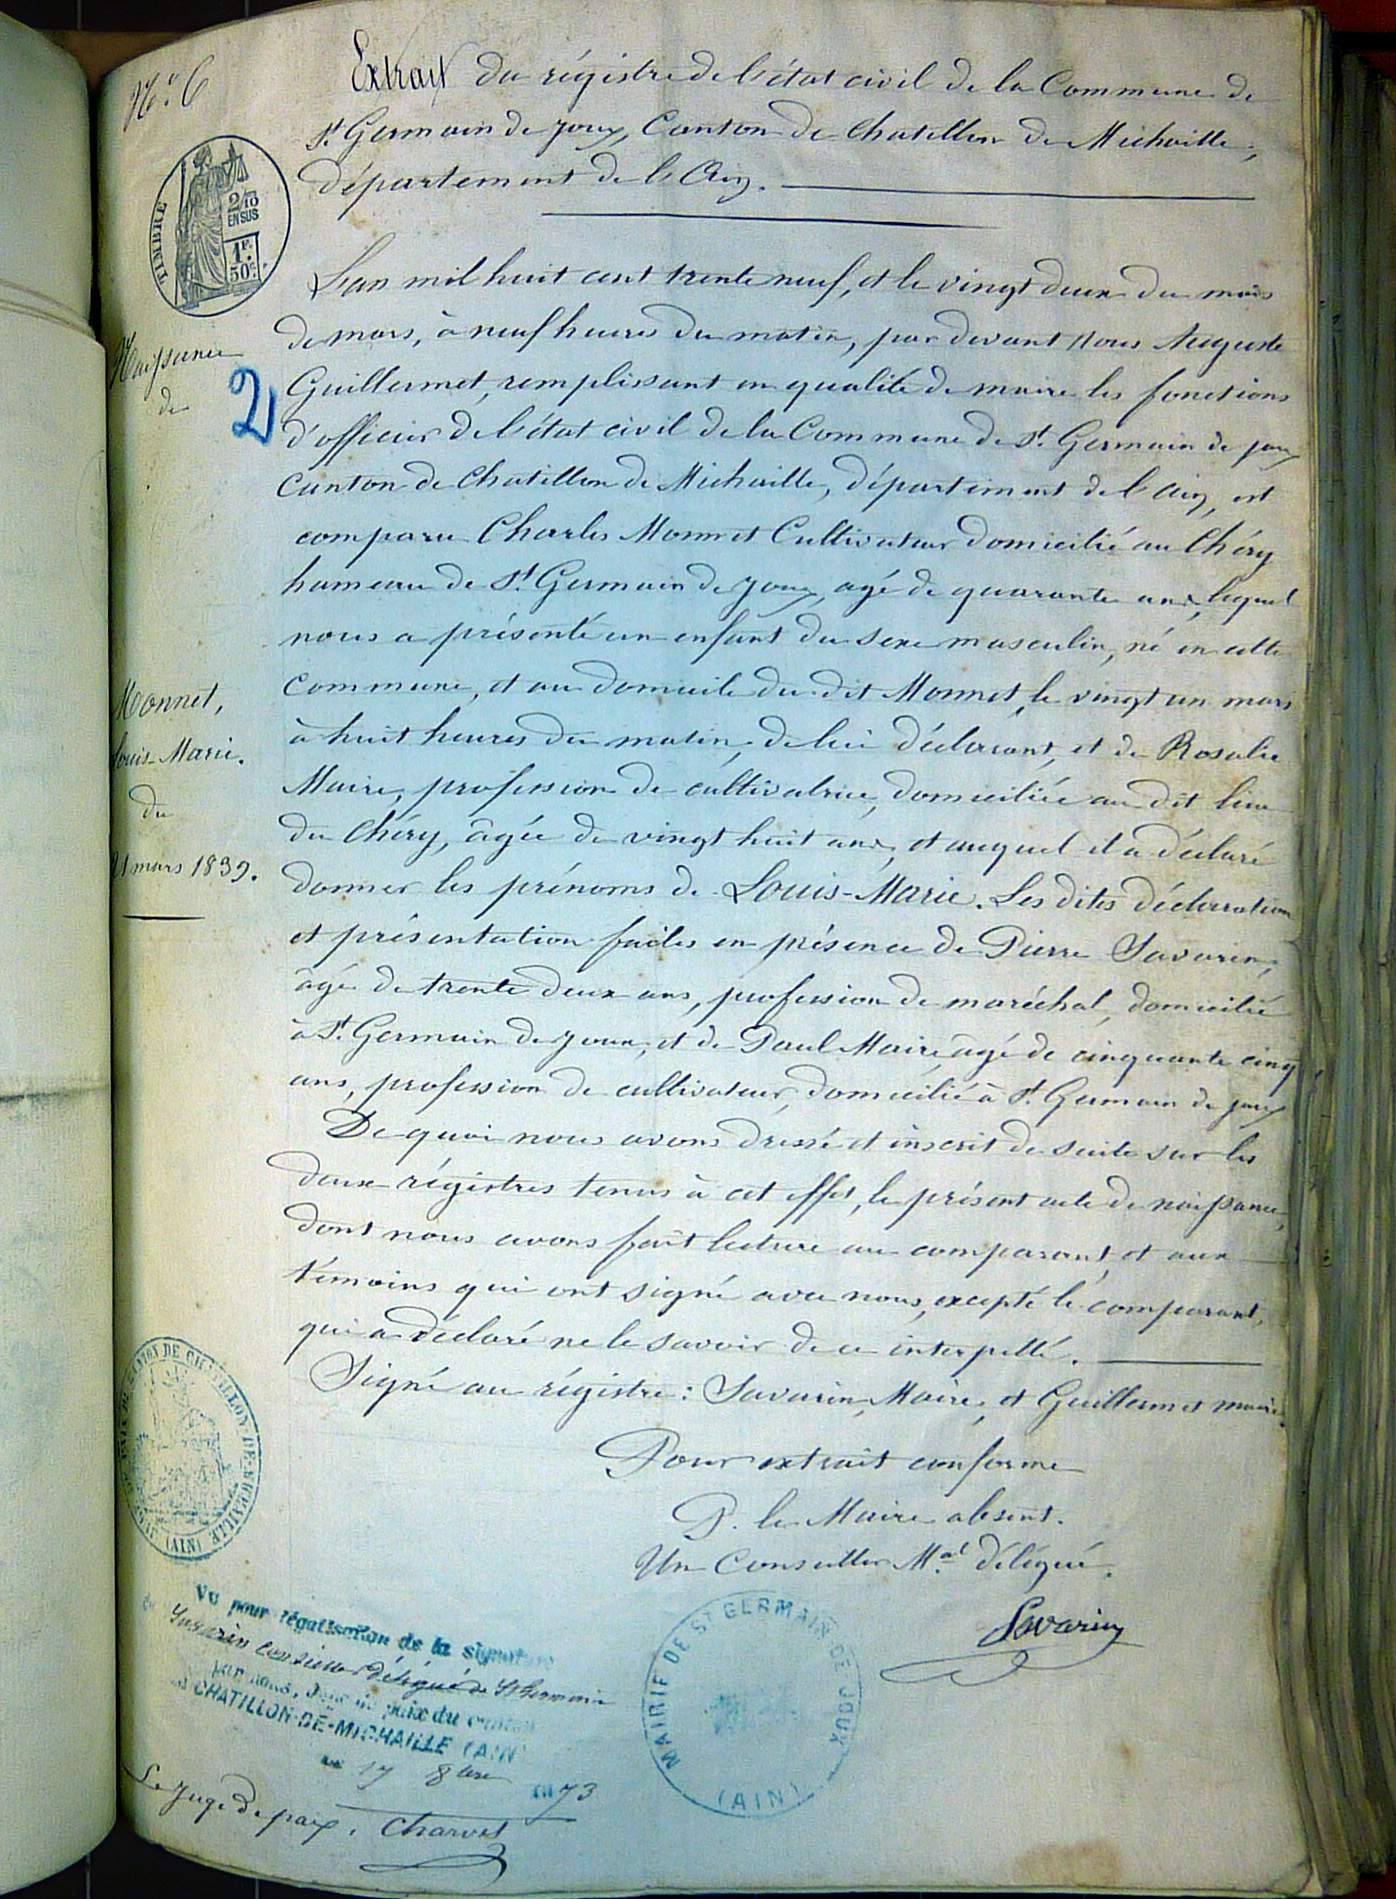 N.º 6
Extrait du régistre de l'état civil de la Commune de
St. Germain de Joux, Canton de Chatillon de Michaille,
département de l'Ain.
TIMBRE
2/10
EN SUS
1F.
50c.
L'an mil huit cent trente neuf, et le vingt deux du mois
de mars, à neuf heures du matin, par devant nous Auguste
Guillermet, remplissant en qualité de maire les fonctions
d'officier de l'état civil de la Commune de St. Germain de joux
Canton de Chatillon de Michaille, département de l'ain, est
comparu Charles Monnet Cultivateur domicilié au Chéry
hameau de St. Germain de Joux, agé de quarante ans, lequel
nous a présenté un enfant du sexe masculin, né en cette
Commune, et au domicile du dit Monnet, le vingt un mars
à huit heures du matin, de lui déclarant, et de Rosalie
Maire, profession de cultivatrice, domiciliée au dit lieu
du Chéry, âgée de vingt huit ans, et auquel il a déclaré
donner les prénoms de Louis-Marie. Les dites déclaration
et présentation faites en présence de Pierre Savarin,
âgé de trente deux ans, profession de maréchal, domicilié
à St. Germain de Joux, et de Paul Maire, âgé de cinquante cinq
ans, profession de cultivateur, domicilié à St. Germain de joux
De quoi nous avons dressé et inscrit de suite sur les
deux régistres tenus à cet effet, le présent acte de naissance,
dont nous avons fait lecture au comparant, et aux
témoins qui ont signé avec nous, excepté le comparant,
qui a déclaré ne le savoir de ce interpellé.
Signé au régistre: Savarin, Maire, et Guillermet maire.
Naissance
de
2
Monnet,
Louis-Marie.
du
21 mars 1839.
Pour extrait conforme
P. le Maire absent.
Un Conseiller Mal. délégué.
Savarin
MAIRIE DE ST GERMAIN DE JOUX
(AIN)
CANTON DE CHATILLON-DE-MICHAILLE
(AIN)
Vu pour légalisation de la signature
Savarin conseiller délégué de St Germain
par nous, Juge de paix du canton
CHATILLON-DE-MICHAILLE (AIN)
le 17 8bre 1873
Le Juge de paix, Charvet